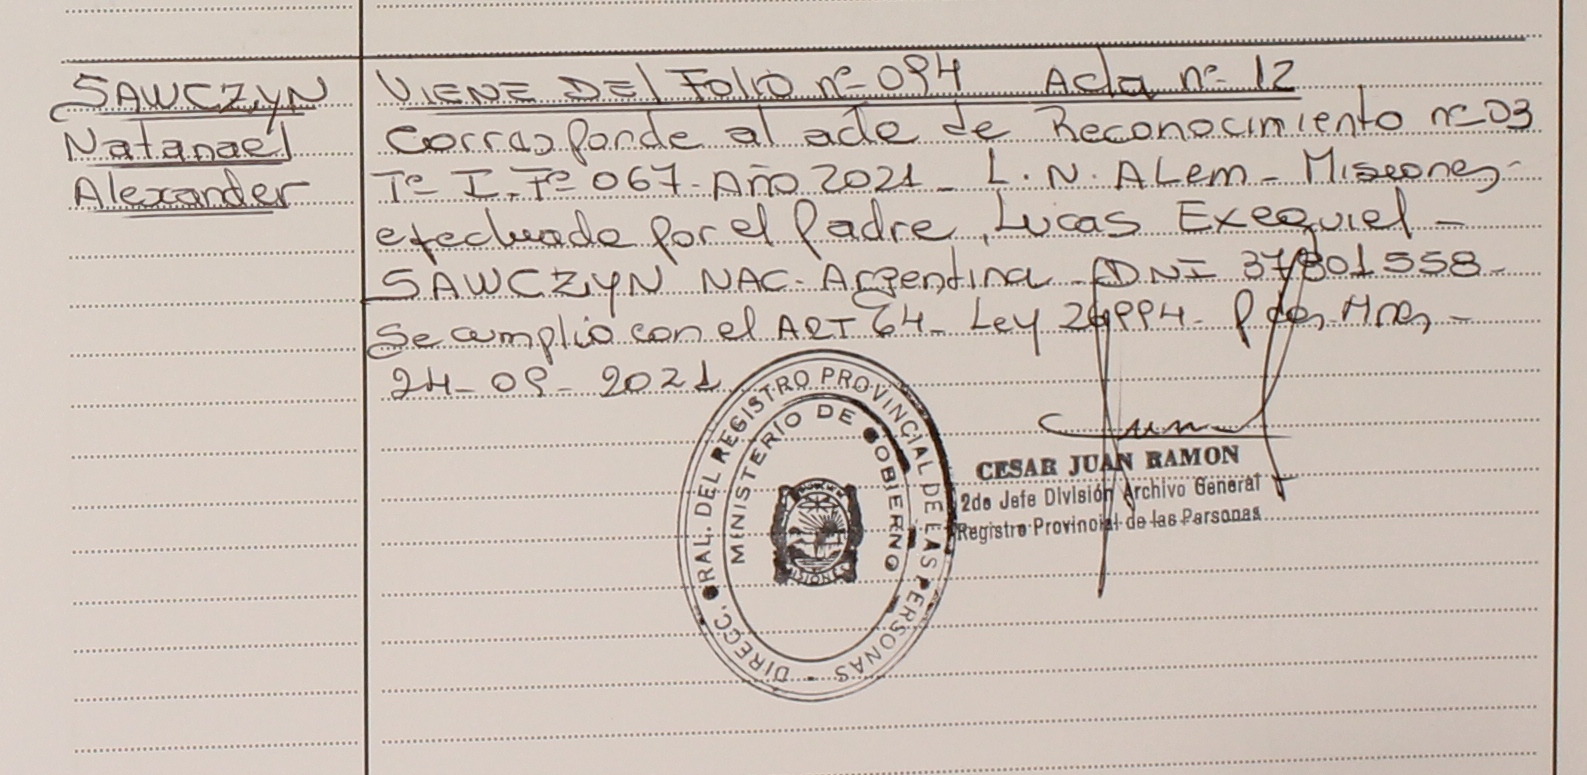 SAWCZYN
Natanael
Alexander
VIENE DEl Folio nº 094 Acta nº 12
Corresponde al acta de Reconocimiento nº 03
Tº I. Fº 067. Año 2021 - L. N. ALem - Misiones -
efectuado por el Padre, Lucas Exequiel -
SAWCZYN NAC. Argentina - DNI 37801558 -
Se cumplio con el ART 64 - Ley 26994 - Pdas, Mnes, -
24 - 09 - 2021
DIRECC. GRAL. DEL REGISTRO PROVINCIAL DE LAS PERSONAS -
MINISTERIO DE GOBIERNO
MISIONES
CESAR JUAN RAMON
2do Jefe División Archivo General
Registro Provincial de las Personas